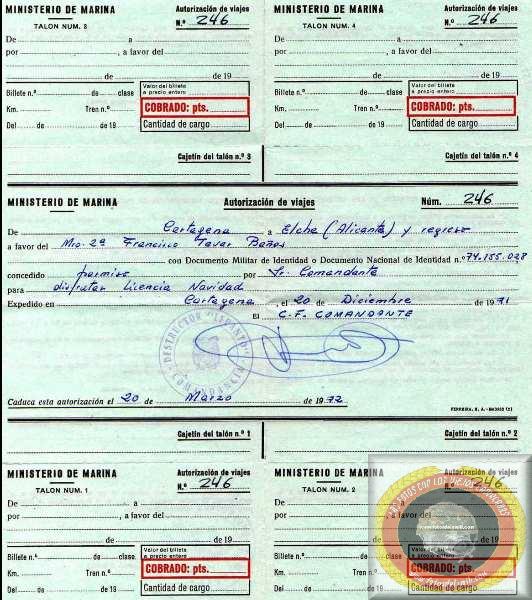 MINISTERIO DE MARINA
TALON NUM. 3
Autorización de viajes
N.º 246
De a
por , a favor del
de de 19
Billete n.º de clase
Km. Tren n.º
Del de de 19
Valor del billete
a precio entero
COBRADO: pts.
Cantidad de cargo
Cajetín del talón n.º 3
MINISTERIO DE MARINA
TALON NUM. 4
Autorización de viajes
N.º 246
De a
por , a favor del
de de 19
Billete n.º de clase
Km. Tren n.º
Del de de 19
Valor del billete
a precio entero
COBRADO: pts.
Cantidad de cargo
Cajetín del talón n.º 4
MINISTERIO DE MARINA Autorización de viajes Núm. 246
De Cartagena a Elche (Alicante) y regreso
a favor del Mro. 2ª Francisco Tavar Baños
con Documento Militar de Identidad o Documento Nacional de Identidad n.º 74.155.028
concedido permiso por Sr. Comandante
para disfrutar Licencia Navidad
Expedido en Cartagena, el 20 de Diciembre de 1971
El C.F. COMANDANTE
DESTRUCTOR "LEPANTO"
COMANDANCIA
Caduca esta autorización el 20 de Marzo de 1972
FERREIRA, S. A.-MADRID (2)
Cajetín del talón n.º 1
Cajetín del talón n.º 2
MINISTERIO DE MARINA
TALON NUM. 1
Autorización de viajes
N.º 246
De a
por , a favor del
de de 19
Billete n.º de clase
Km. Tren n.º
Del de de 19
Valor del billete
a precio entero
COBRADO: pts.
Cantidad de cargo
MINISTERIO DE MARINA
TALON NUM. 2
Autorización de viajes
N.º 246
De a
por , a favor
de
Billete n.º
Km. Tren n.º
Del de
COBRADO: pts.
Cantidad de cargo